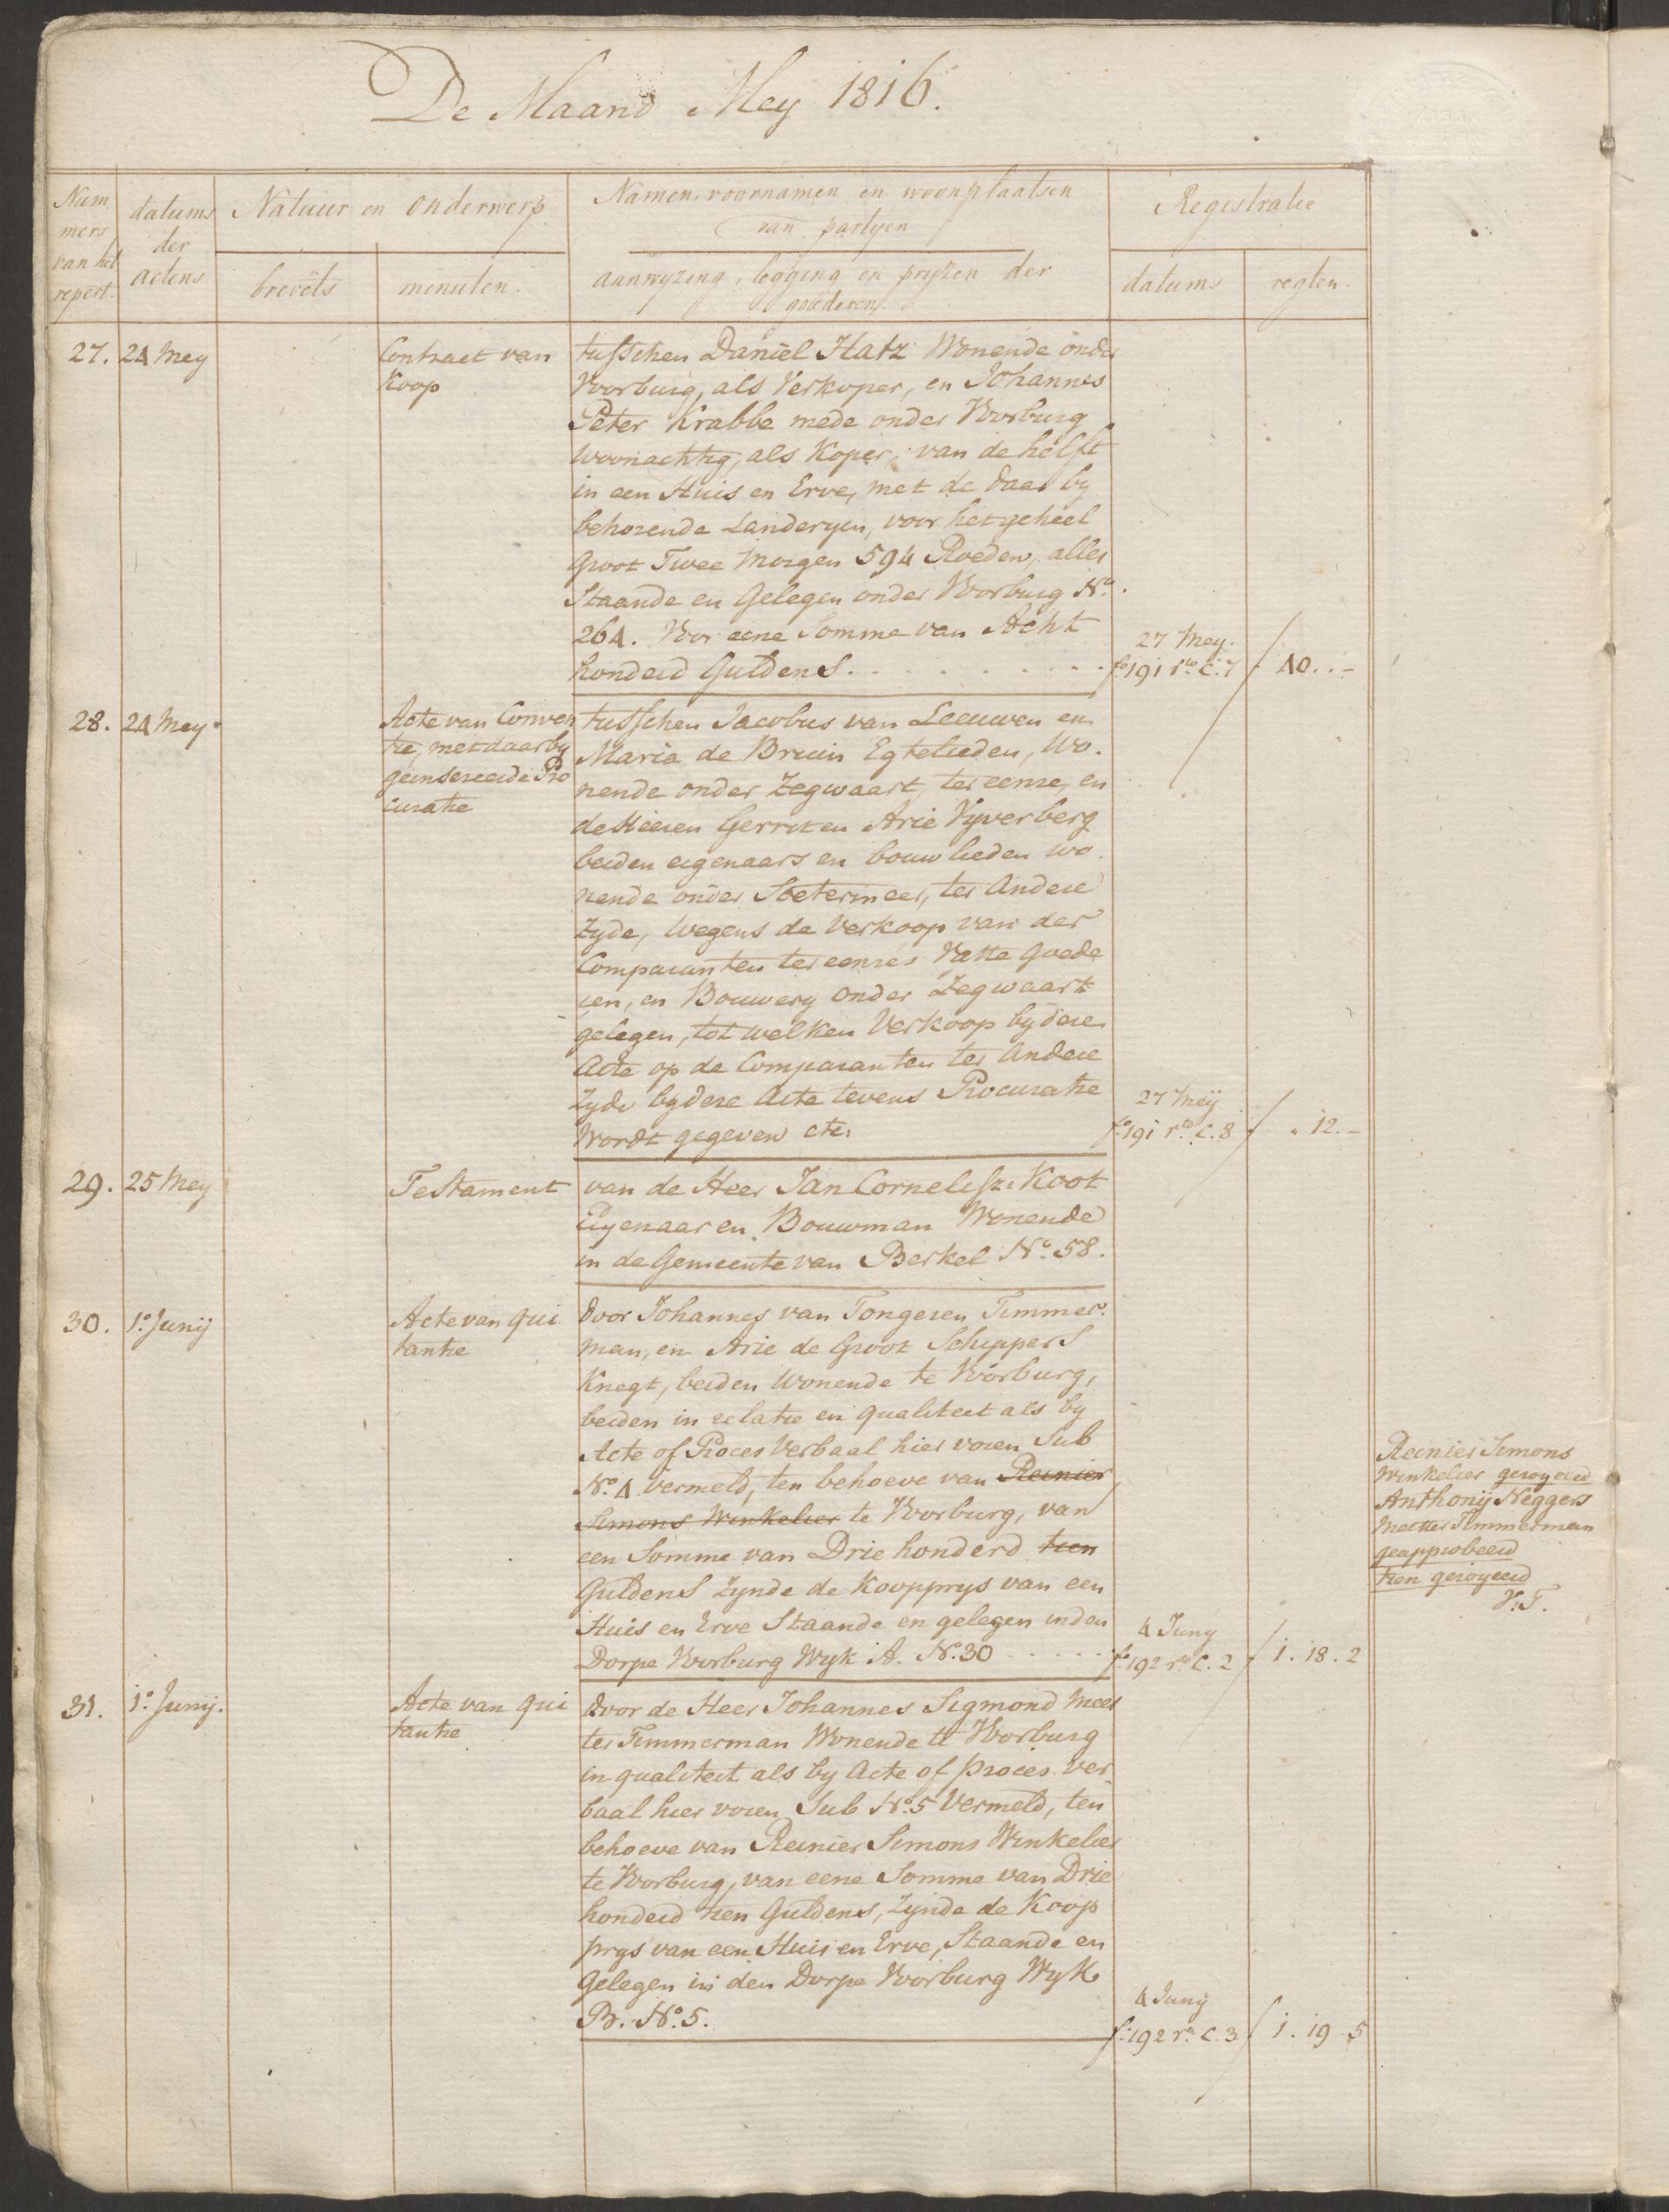 De Maand Mey 1816.
Num
mers
van het
repert.
datums
der
actens
Natuur en onderwerp
brevets
minuten.
Namen, voornamen en woonplaatsen
van partyen
aanwyzing, legging en pryzen der
goederen.
Registratie
datums
regten.
27. 24 Mey
Contract van
Koop
tusschen Daniel Hatz Wonende onder
Voorburg, als Verkoper, en Johannes
Peter Krabbe mede onder Voorburg
woonachtig, als Koper, van de helft
in een Huis en Erve, met de daar by
behorende Landeryen, voor het geheel
Groot Twee Morgen 594 Roeden, alles
Staande en Gelegen onder Voorburg No.
264. Voor eene Somme van Acht
honderd Guldens.
27 Mey.
fo 191 ro. C. 7
f 40..-
28. 24 Mey
Acte van Conven
tie, met daar by
geinsereerde Pro
curatie
tusschen Jacobus van Leeuwen en
Maria de Bruin Egtelieden, Wo-
nende onder Zegwaart, ter eenre, en
de Heeren Gerrit en Arie Vyverberg
beiden eigenaars en bouwlieden wo
nende onder Soetermeer, ter Andere
Zyde, wegens de Verkoop van der
Comparanten ter eenre's Vatte Goede
ren, en Bouwery onder Zegwaart
gelegen, tot welken Verkoop by dere
Acte op de Comparanten ter Andere
Zyde by dere Acte tevens Procuratie
Wordt gegeven etc.
27 Meij
fo 191 ro. C. 8
f " 12.-
29. 25 Mey
Testament
van de Heer Jan Cornelisz. Koot
Eigenaar en Bouwman Wonende
in de Gemeente van Berkel No. 58.
30. 1o. Junij
Acte van qui
tantie
door Johannes van Tongeren Timmer-
man, en Arie de Groot Schippers
Knegt, beiden Wonende te Voorburg,
beiden in relatie en qualiteit als by
Acte of Proces Verbaal hier voren Sub
No. 4 vermeld, ten behoeve van Reinier
Simons Winkelier te Voorburg, van
een Somme van Drie honderd tien
Guldens Zynde de Koopprys van een
Huis en Erve Staande en gelegen in den
Dorpe Voorburg Wyk A. No. 30
4 Juny
fo 192 ro. C. 2
f 1. 18. 2
Reinier Simons
Winkelier geroyeerd
Anthonij Neggers
Meester Timmerman
geapprobeerd
tien geroyeerd
V.T.
31. 1o. Junij.
Acte van qui
tantie
door de Heer Johannes Sigmond Mees
ter Timmerman Wonende te Voorburg
in qualiteit als by Acte of proces ver
baal hier voren Sub No. 5 Vermeld, ten
behoeve van Reinier Simons Winkelier
te Voorburg, van eene Somme van Drie
honderd tien Guldens, Zynde de Koop
prys van een Huis en Erve, Staande en
Gelegen in den Dorpe Voorburg Wyk
B. No. 5.
4 Junij
fo 192 ro. C. 3
f 1. 19 5